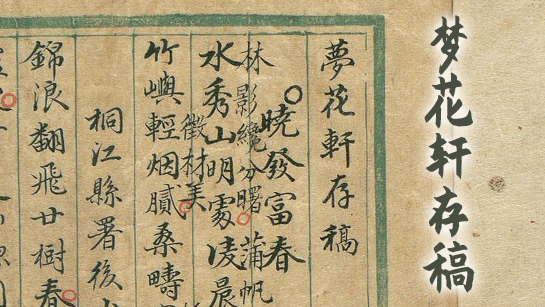 梦花轩存稿
夢花軒存稿
曉發富春
林影纔分曙蒲帆
水秀山明處凌晨
徵材美
竹嶼輕烟膩桑疇
桐江縣署後
錦浪翻飛廿樹春